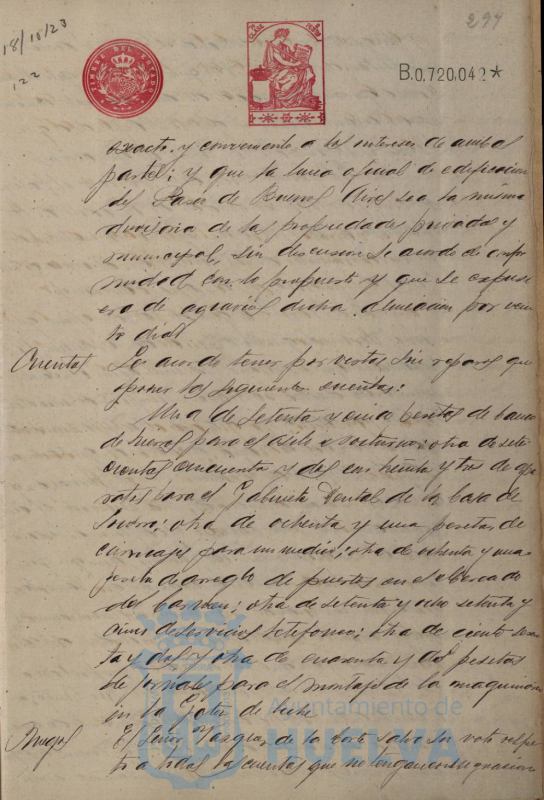 18/10/23
122
TIMBRE DEL ESTADO
297
B.0.720.042*
exacto y conveniente a los intereses de ambas
partes; y que la linea oficial de edificacion
del Paseo de Buenos Aires sea la misma
divisoria de las propiedades privadas y
municipal, sin discusion se acordo de confor
midad con lo propuesto y que se expusie
ra de agravios dicha alineacion por vein
te dias
Cuentas Se acordo tener por vistas sin reparos que
oponer las siguientes cuentas:
Una de setenta y cinco pesetas de
de hierros para el asilo nocturno; otra de sete
cientas cincuenta y dos con treinta y tres de apa
ratos para el Gabinete Dental de la Casa de
Socorro; otra de ochenta y una pesetas de
carruajes para un medico; otra de ochenta y una
peseta de arreglo de puertas en el Mercado
del Carmen; otra de setenta y ocho setenta y
cinco de servicios telefonicos; otra de ciento sesen
ta y dos y otra de cuarenta y dos pesetas
de jornales para el montaje de la maquinaria
en la Gota de Leche
El Señor de la Corte salva su voto respec
to a todas las cuentas que no tengan consignacion
Ayuntamiento de
HUELVA